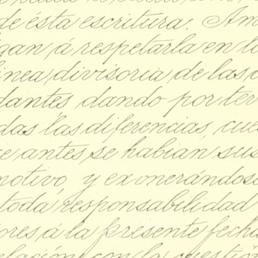 de ésta escritura. Am
gan á respetarla en lo
linea divisoria de las
dantes dando por ter
das las diferencias, cues
e antes se habian sus
motivo, y exonerándose
toda responsabilidad
ores á la presente fecha
elación con la cuestión